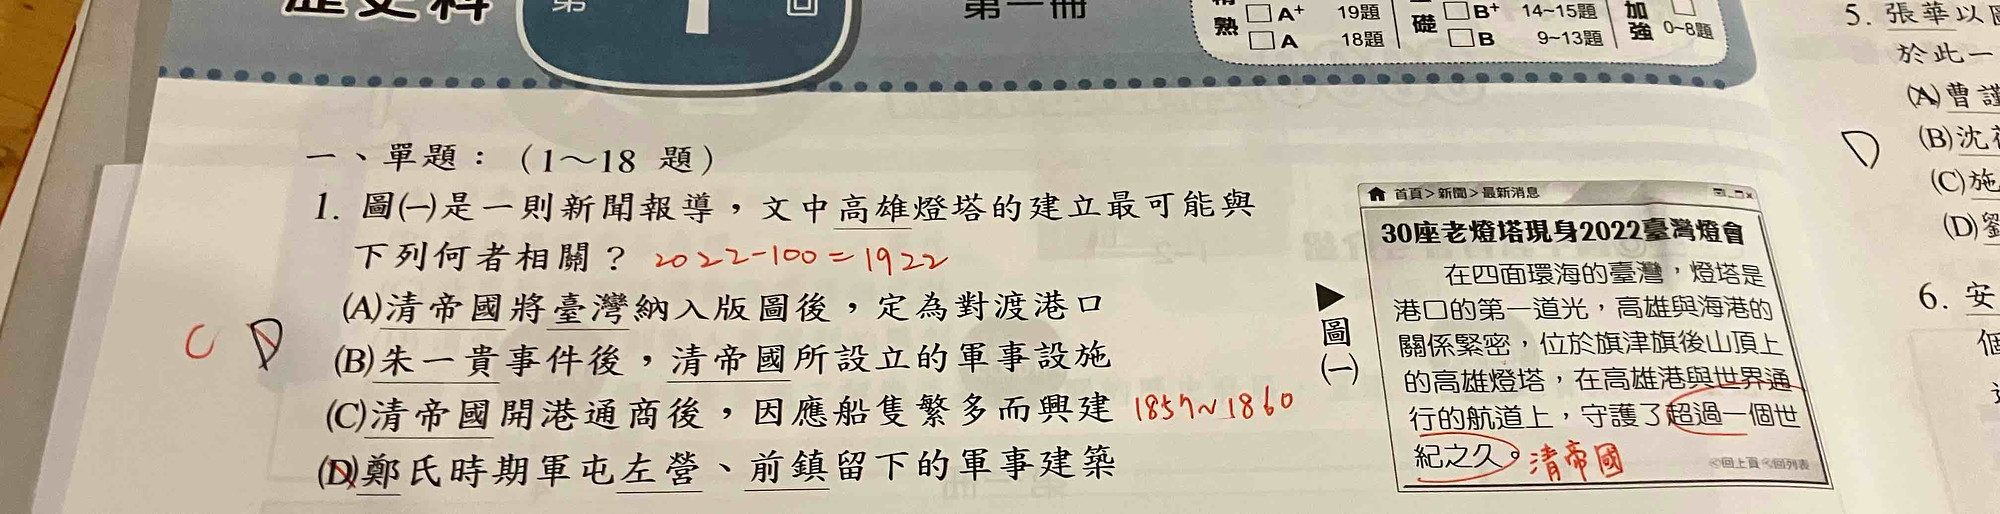 歷史科
第
1
回
第一冊
熟
□A⁺ 19題
□A 18題
礎
□B⁺ 14~15題
□B 9~13題
加強
0~8題
一、單題：（1～18 題）
1. 圖㈠是一則新聞報導，文中高雄燈塔的建立最可能與
下列何者相關？ 2022-100=1922
(A)清帝國將臺灣納入版圖後，定為對渡港口
C D
(B)朱一貴事件後，清帝國所設立的軍事設施
(C)清帝國開港通商後，因應船隻繁多而興建 1857~1860
(D)鄭氏時期軍屯左營、前鎮留下的軍事建築
▶圖㈠
首頁>新聞>最新消息
30座老燈塔現身2022臺灣燈會
在四面環海的臺灣，燈塔是
港口的第一道光，高雄與海港的
關係緊密，位於旗津旗後山頂上
的高雄燈塔，在高雄港與世界通
行的航道上，守護了超過一個世
紀之久。 清帝國
回上頁 回列表
5. 張華以
於此一
(A)曹謹
D
(B)沈
(C)施
(D)劉
6. 安
個